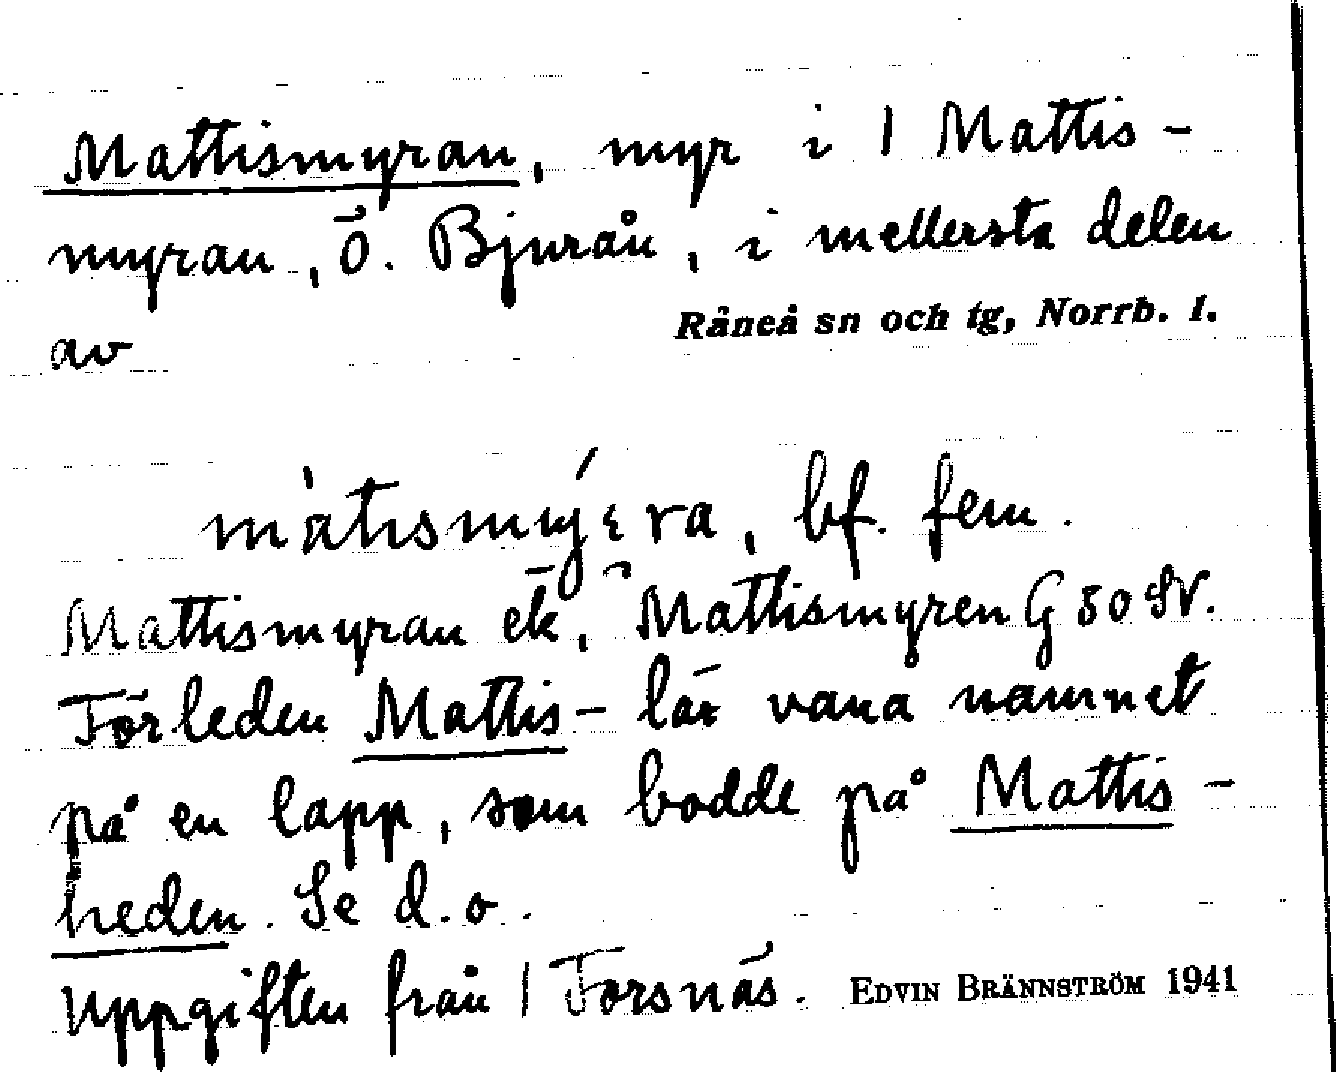 Mattismyran, myr i 1 Mattis-
myran, Ö. Bjurån, i mellersta delen
av
Råneå sn och tg, Norrb. l.
bf. fem.
Mattismyran ek, Mattismyren G 50 SV.
Förleden Mattis- lär vara namnet
på en lapp, som bodde på Mattis-
heden. Se d. o.
Uppgiften från 1 Forsnäs. EDVIN BRÄNNSTRÖM 1941